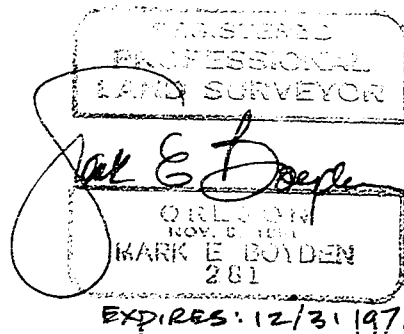 REGISTERED
PROFESSIONAL
LAND SURVEYOR
Mark E Boyden
OREGON
NOV.
MARK E BOYDEN
281
EXPIRES: 12/31/97